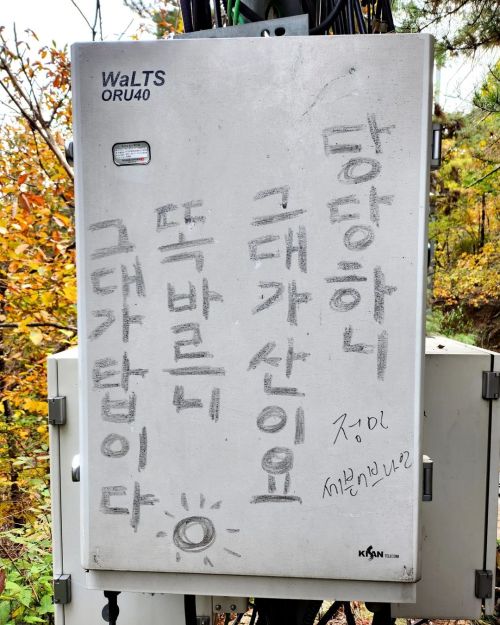 WaLTS
ORU40
당당하니
그대가 산이요
똑바르니
그대가 탑이다
정민
KISAN TELECOM